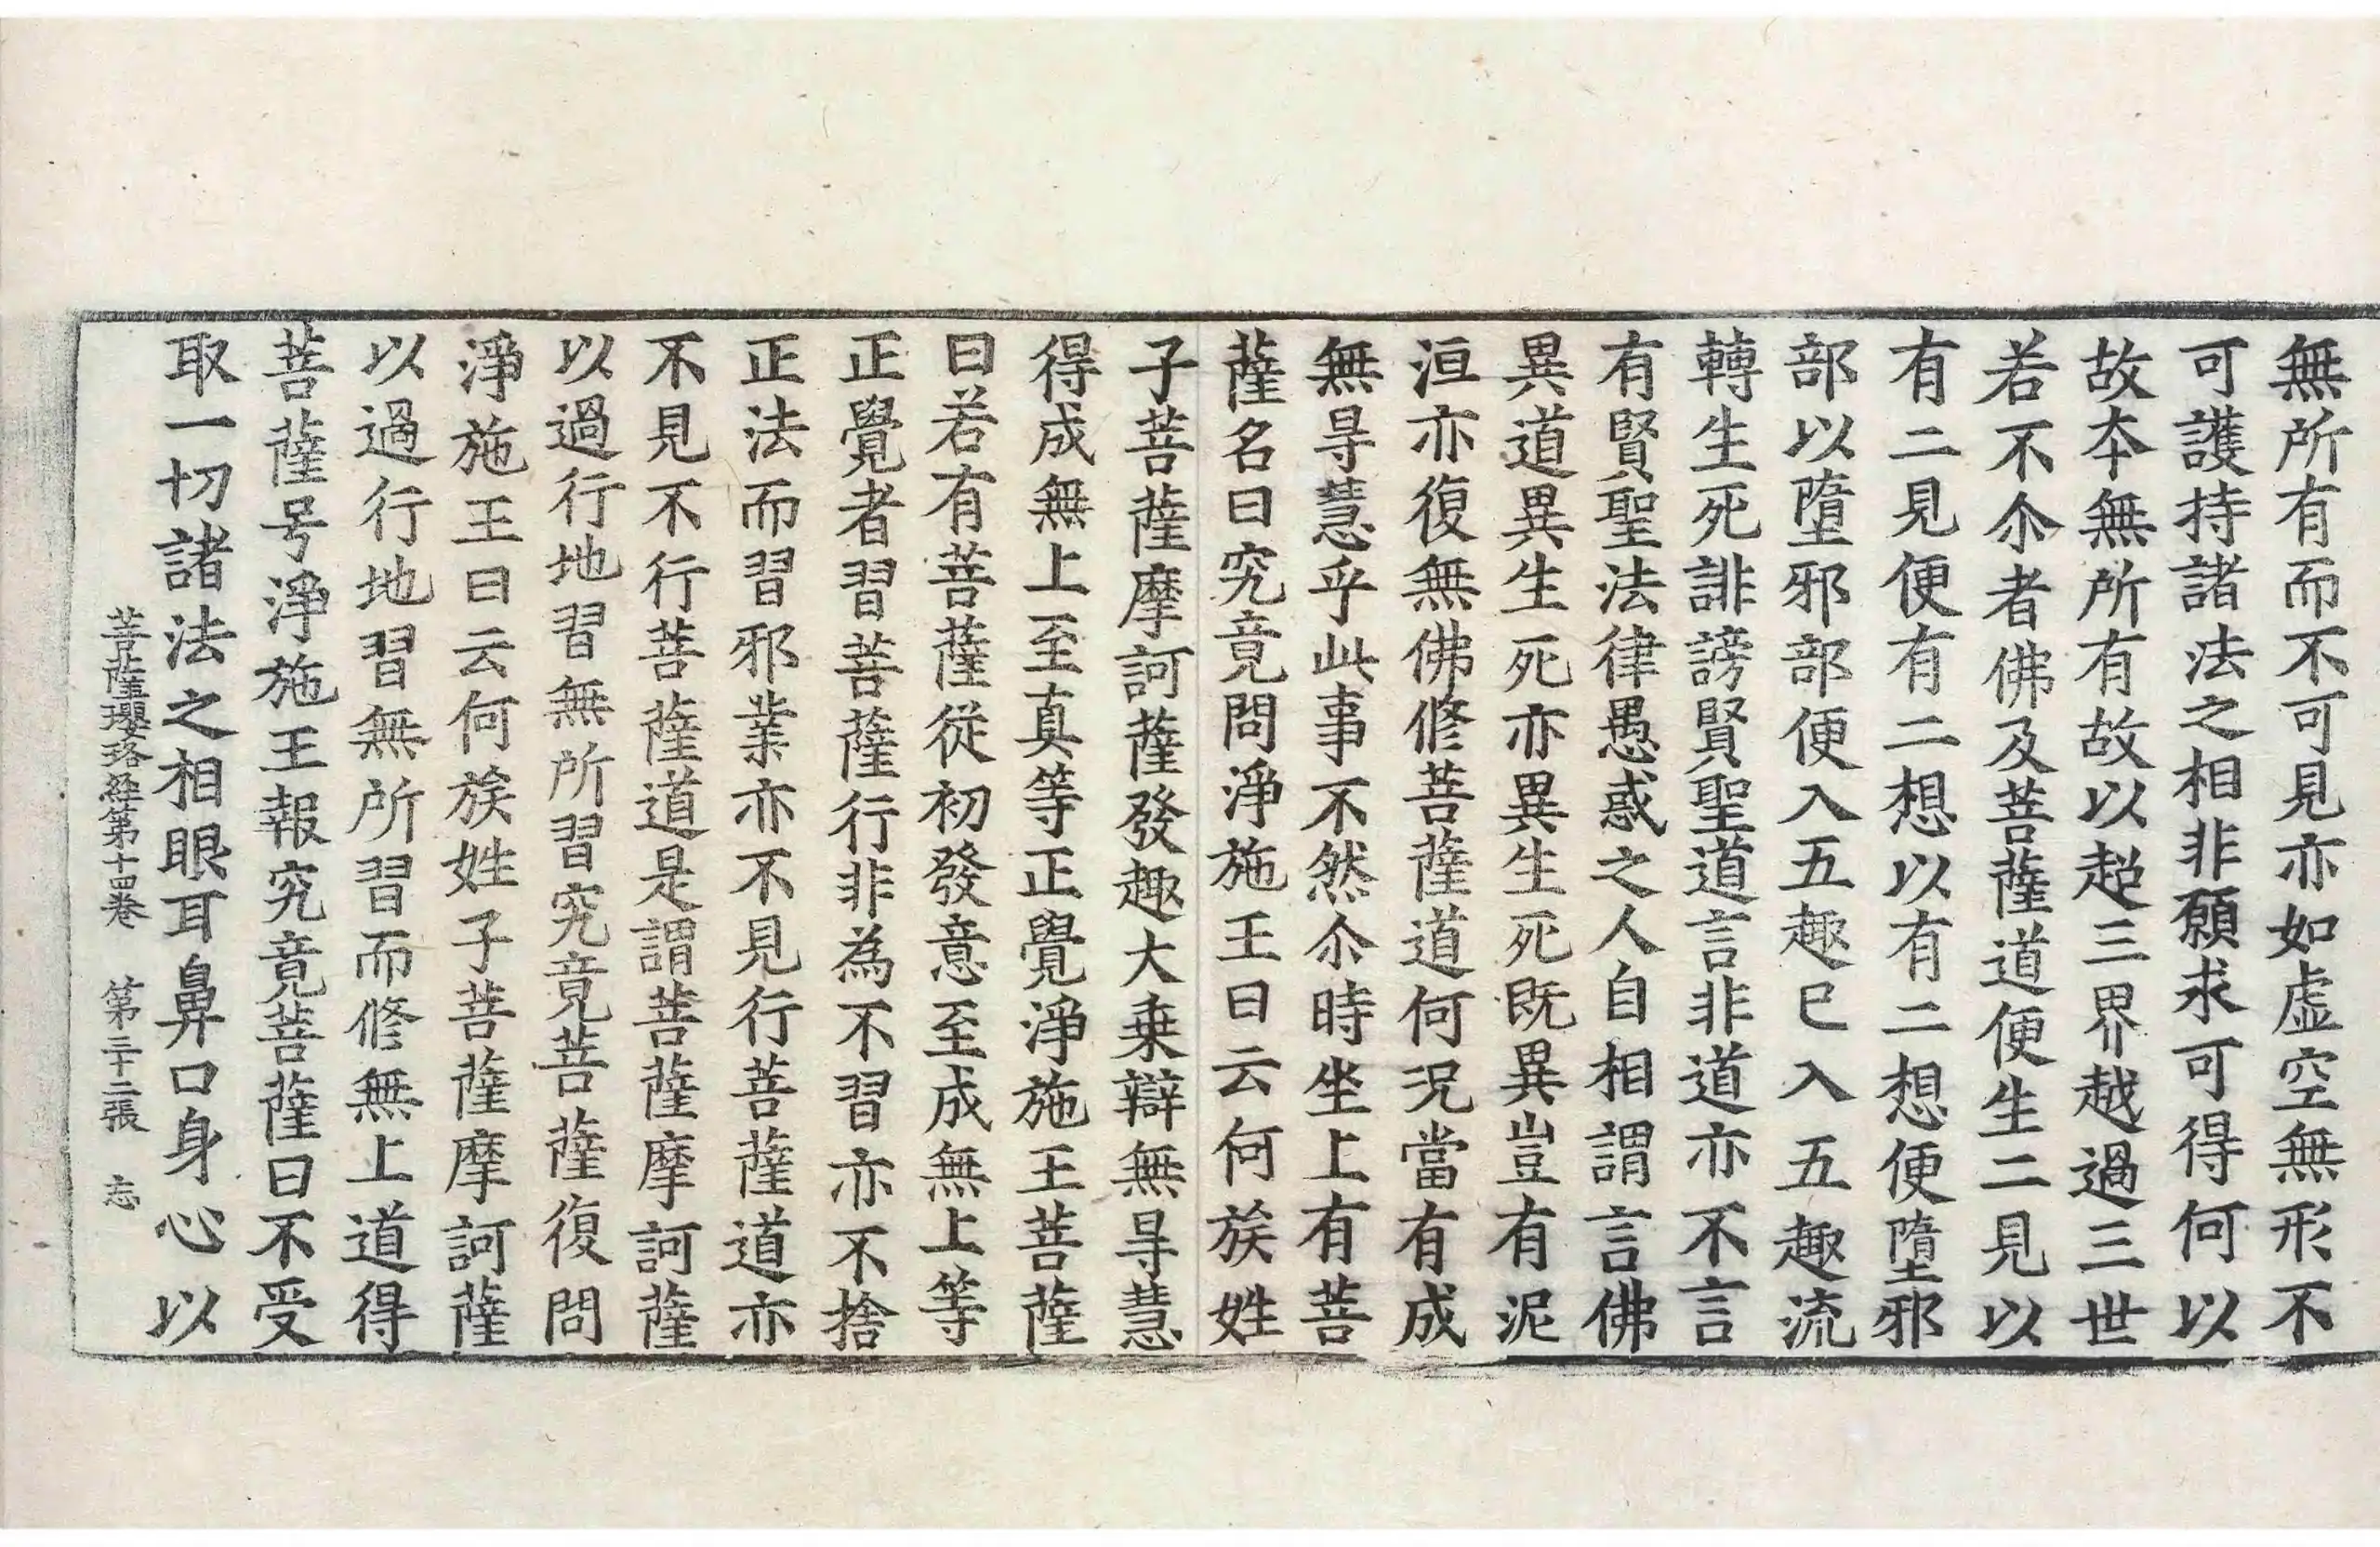 無所有而不可見亦如虛空無形不
可護持諸法之相非願求可得何以
故夲無所有故以超三界越過三世
若不尒者佛及菩薩道便生二見以
有二見便有二想以有二想便墮邪
部以墮邪部便入五趣已入五趣流
轉生死誹謗賢聖道言非道亦不言
有賢聖法律愚惑之人自相謂言佛
異道異生死亦異生死既異豈有泥
洹亦復無佛修菩薩道何況當有成
無㝵慧乎此事不然尒時坐上有菩
薩名曰究竟問淨施王曰云何族姓
子菩薩摩訶薩發趣大乗辯無㝵慧
得成無上至真等正覺淨施王菩薩
曰若有菩薩從初發意至成無上等
正覺者習菩薩行非為不習亦不捨
正法而習邪業亦不見行菩薩道亦
不見不行菩薩道是謂菩薩摩訶薩
以過行地習無所習究竟菩薩復問
淨施王曰云何族姓子菩薩摩訶薩
以過行地習無所習而修無上道得
菩薩号淨施王報究竟菩薩曰不受
取一切諸法之相眼耳鼻口身心以
菩薩瓔珞経第十四卷 第三十二張 忘